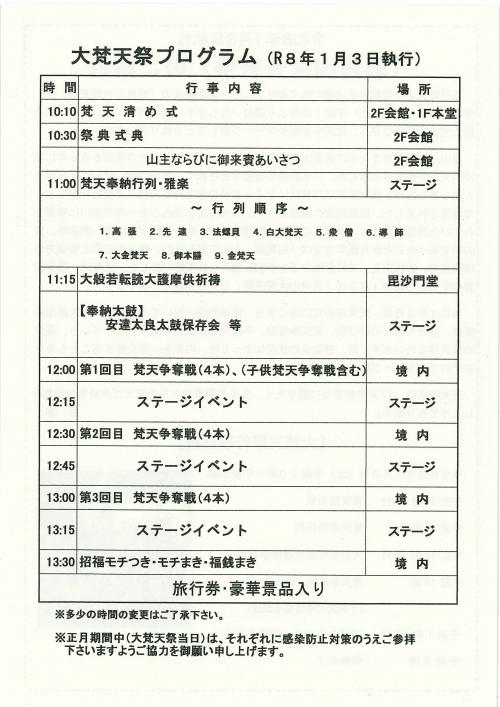 大梵天祭プログラム（R８年１月３日執行）
時 間 行 事 内 容 場 所
10:10 梵 天 清 め 式 2F会館・1F本堂
10:30 祭 典 式 典 2F会館
山主ならびに御来賓あいさつ 2F会館
11:00 梵天奉納行列・雅楽 ステージ
～ 行 列 順 序 ～
1. 高 張 2. 先 達 3. 法螺貝 4. 白大梵天 5. 衆 僧 6. 導 師
7. 大金梵天 8. 御本膳 9. 金梵天
11:15 大般若転読大護摩供祈祷 毘沙門堂
【奉納太鼓】
安達太良太鼓保存会 等 ステージ
12:00 第1回目 梵天争奪戦（４本）、（子供梵天争奪戦含む） 境 内
12:15 ステージイベント ステージ
12:30 第2回目 梵天争奪戦（４本） 境 内
12:45 ステージイベント ステージ
13:00 第3回目 梵天争奪戦（４本） 境 内
13:15 ステージイベント ステージ
13:30 招福モチつき・モチまき・福銭まき 境 内
旅行券・豪華景品入り
※多少の時間の変更はご了承下さい。
※正月期間中（大梵天祭当日）は、それぞれに感染防止対策のうえご参拝
下さいますようご協力を御願い申し上げます。